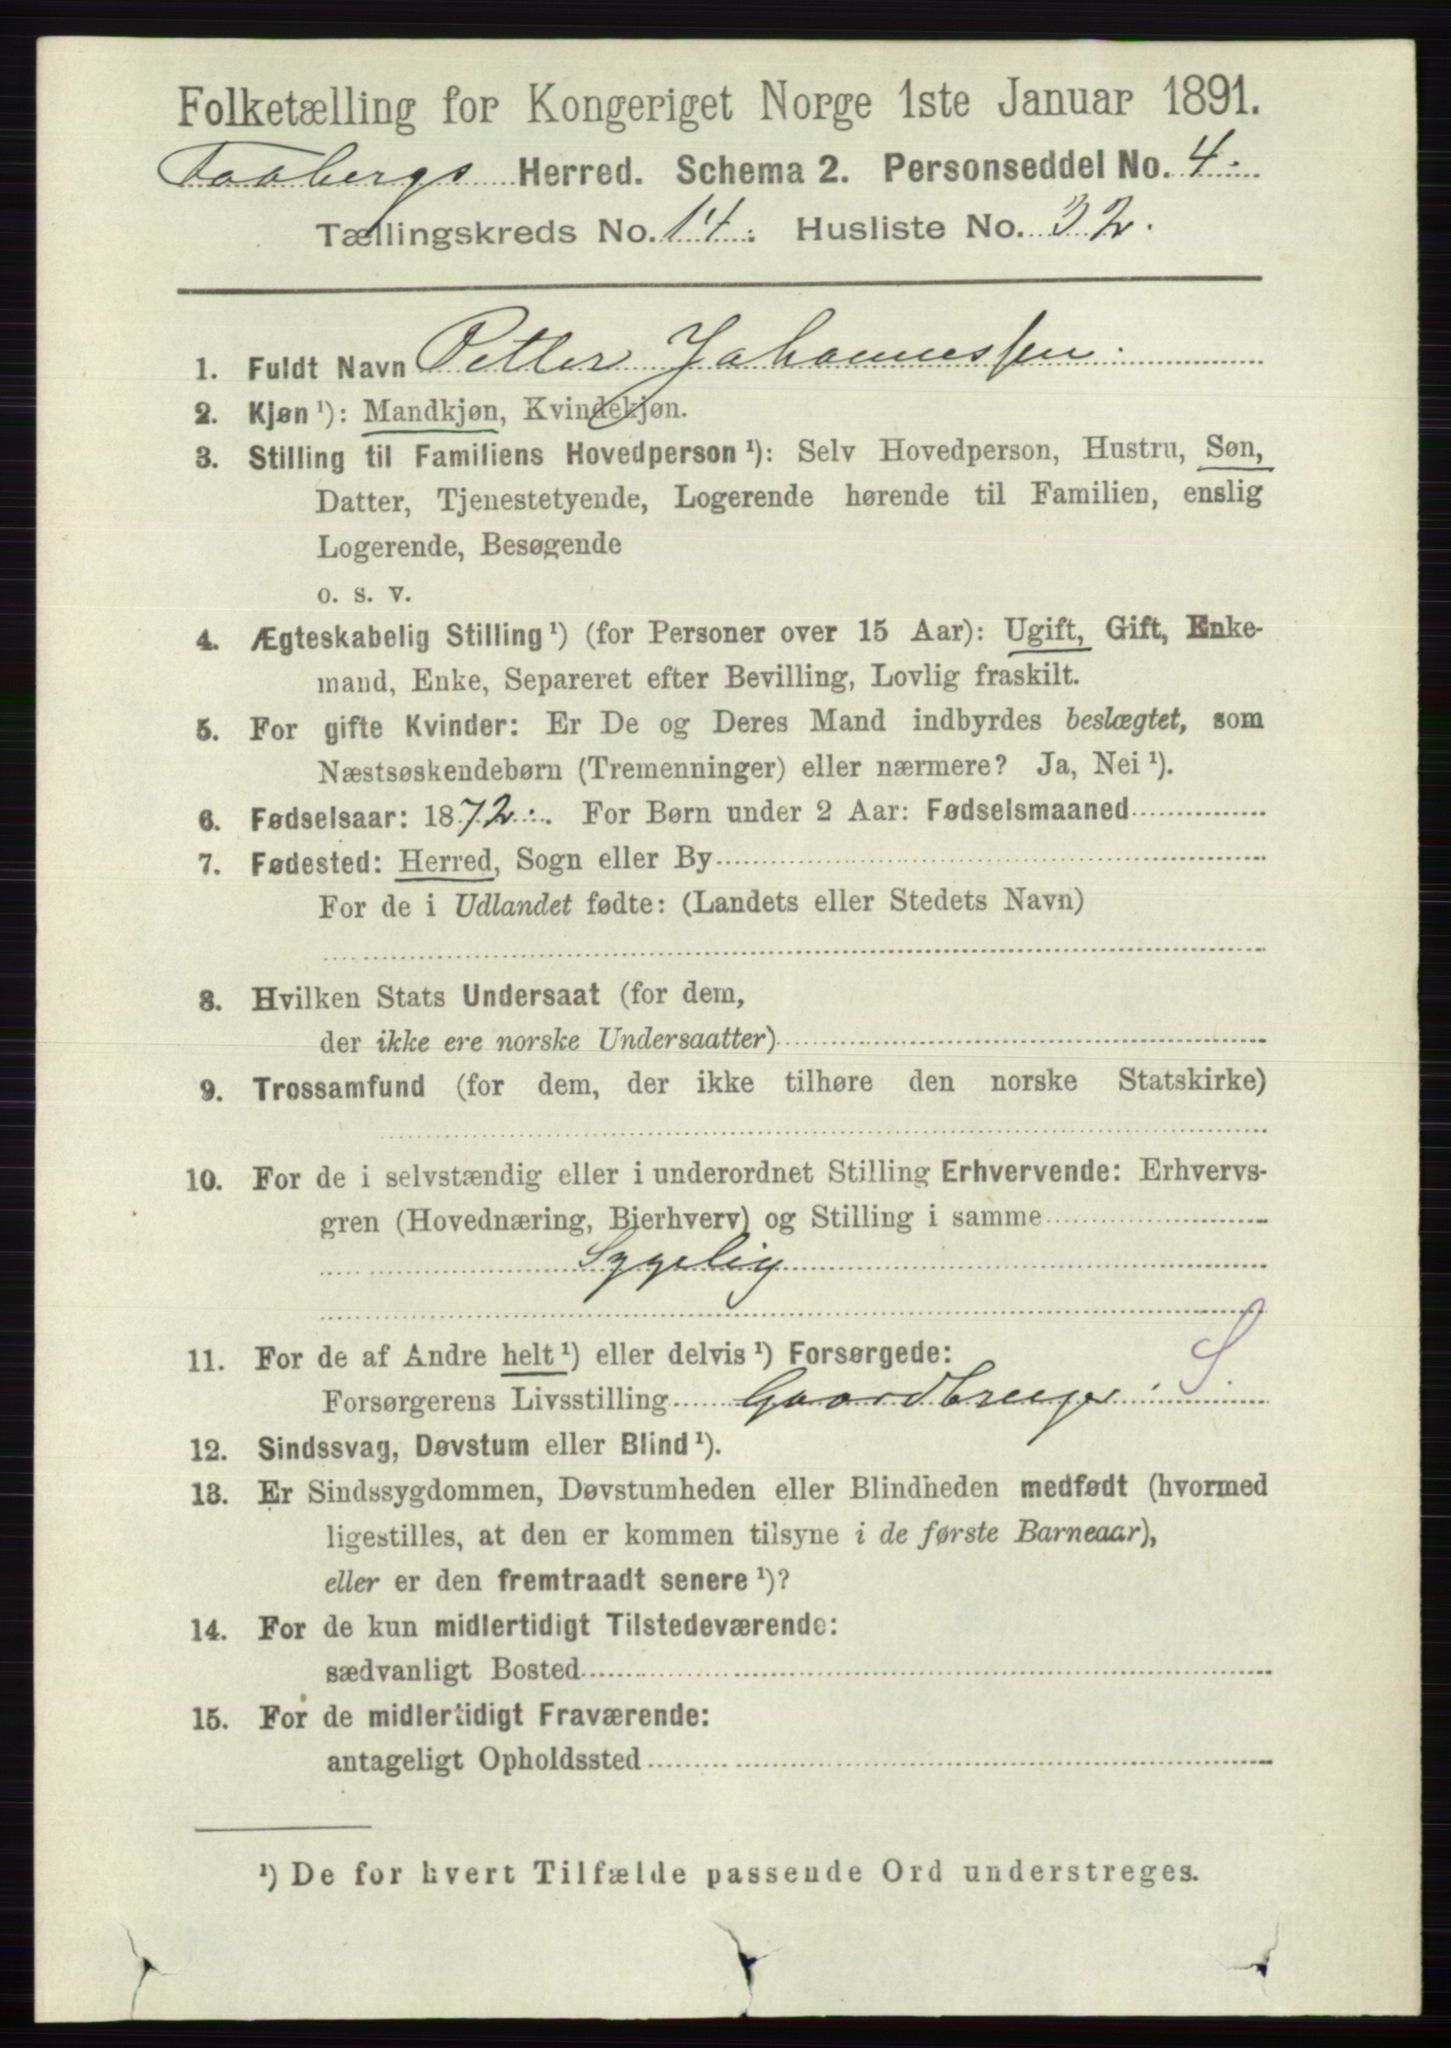 Folketælling for Kongeriget Norge 1ste Januar 1891.
Faabergs Herred. Schema 2. Personseddel No. 4.
Tællingskreds No. 14. Husliste No. 32.
1. Fuldt Navn Petter Johannessen
2. Kjøn ¹): Mandkjøn, Kvindekjøn.
3. Stilling til Familiens Hovedperson ¹): Selv Hovedperson, Hustru, Søn,
Datter, Tjenestetyende, Logerende hørende til Familien, enslig
Logerende, Besøgende
o. s. v.
4. Ægteskabelig Stilling ¹) (for Personer over 15 Aar): Ugift, Gift, Enke-
mand, Enke, Separeret efter Bevilling, Lovlig fraskilt.
5. For gifte Kvinder: Er De og Deres Mand indbyrdes beslægtet, som
Næstsøskendebørn (Tremenninger) eller nærmere? Ja, Nei ¹).
6. Fødselsaar: 1872. For Børn under 2 Aar: Fødselsmaaned
7. Fødested: Herred, Sogn eller By
For de i Udlandet fødte: (Landets eller Stedets Navn)
8. Hvilken Stats Undersaat (for dem,
der ikke ere norske Undersaatter)
9. Trossamfund (for dem, der ikke tilhøre den norske Statskirke)
10. For de i selvstændig eller i underordnet Stilling Erhvervende: Erhvervs-
gren (Hovednæring, Bierhverv) og Stilling i samme
Sygelig
11. For de af Andre helt ¹) eller delvis ¹) Forsørgede: S.
Forsørgerens Livsstilling Gaardbruger
12. Sindssvag, Døvstum eller Blind ¹).
13. Er Sindssygdommen, Døvstumheden eller Blindheden medfødt (hvormed
ligestilles, at den er kommen tilsyne i de første Barneaar),
eller er den fremtraadt senere ¹)?
14. For de kun midlertidigt Tilstedeværende:
sædvanligt Bosted
15. For de midlertidigt Fraværende:
antageligt Opholdssted
¹) De for hvert Tilfælde passende Ord understreges.